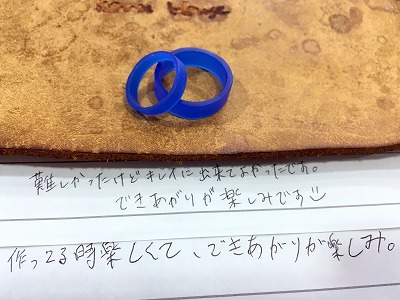 難しかったけどキレイに出来てよかったです。
できあがりが楽しみです
作ってる時楽しくて、できあがりが楽しみ。